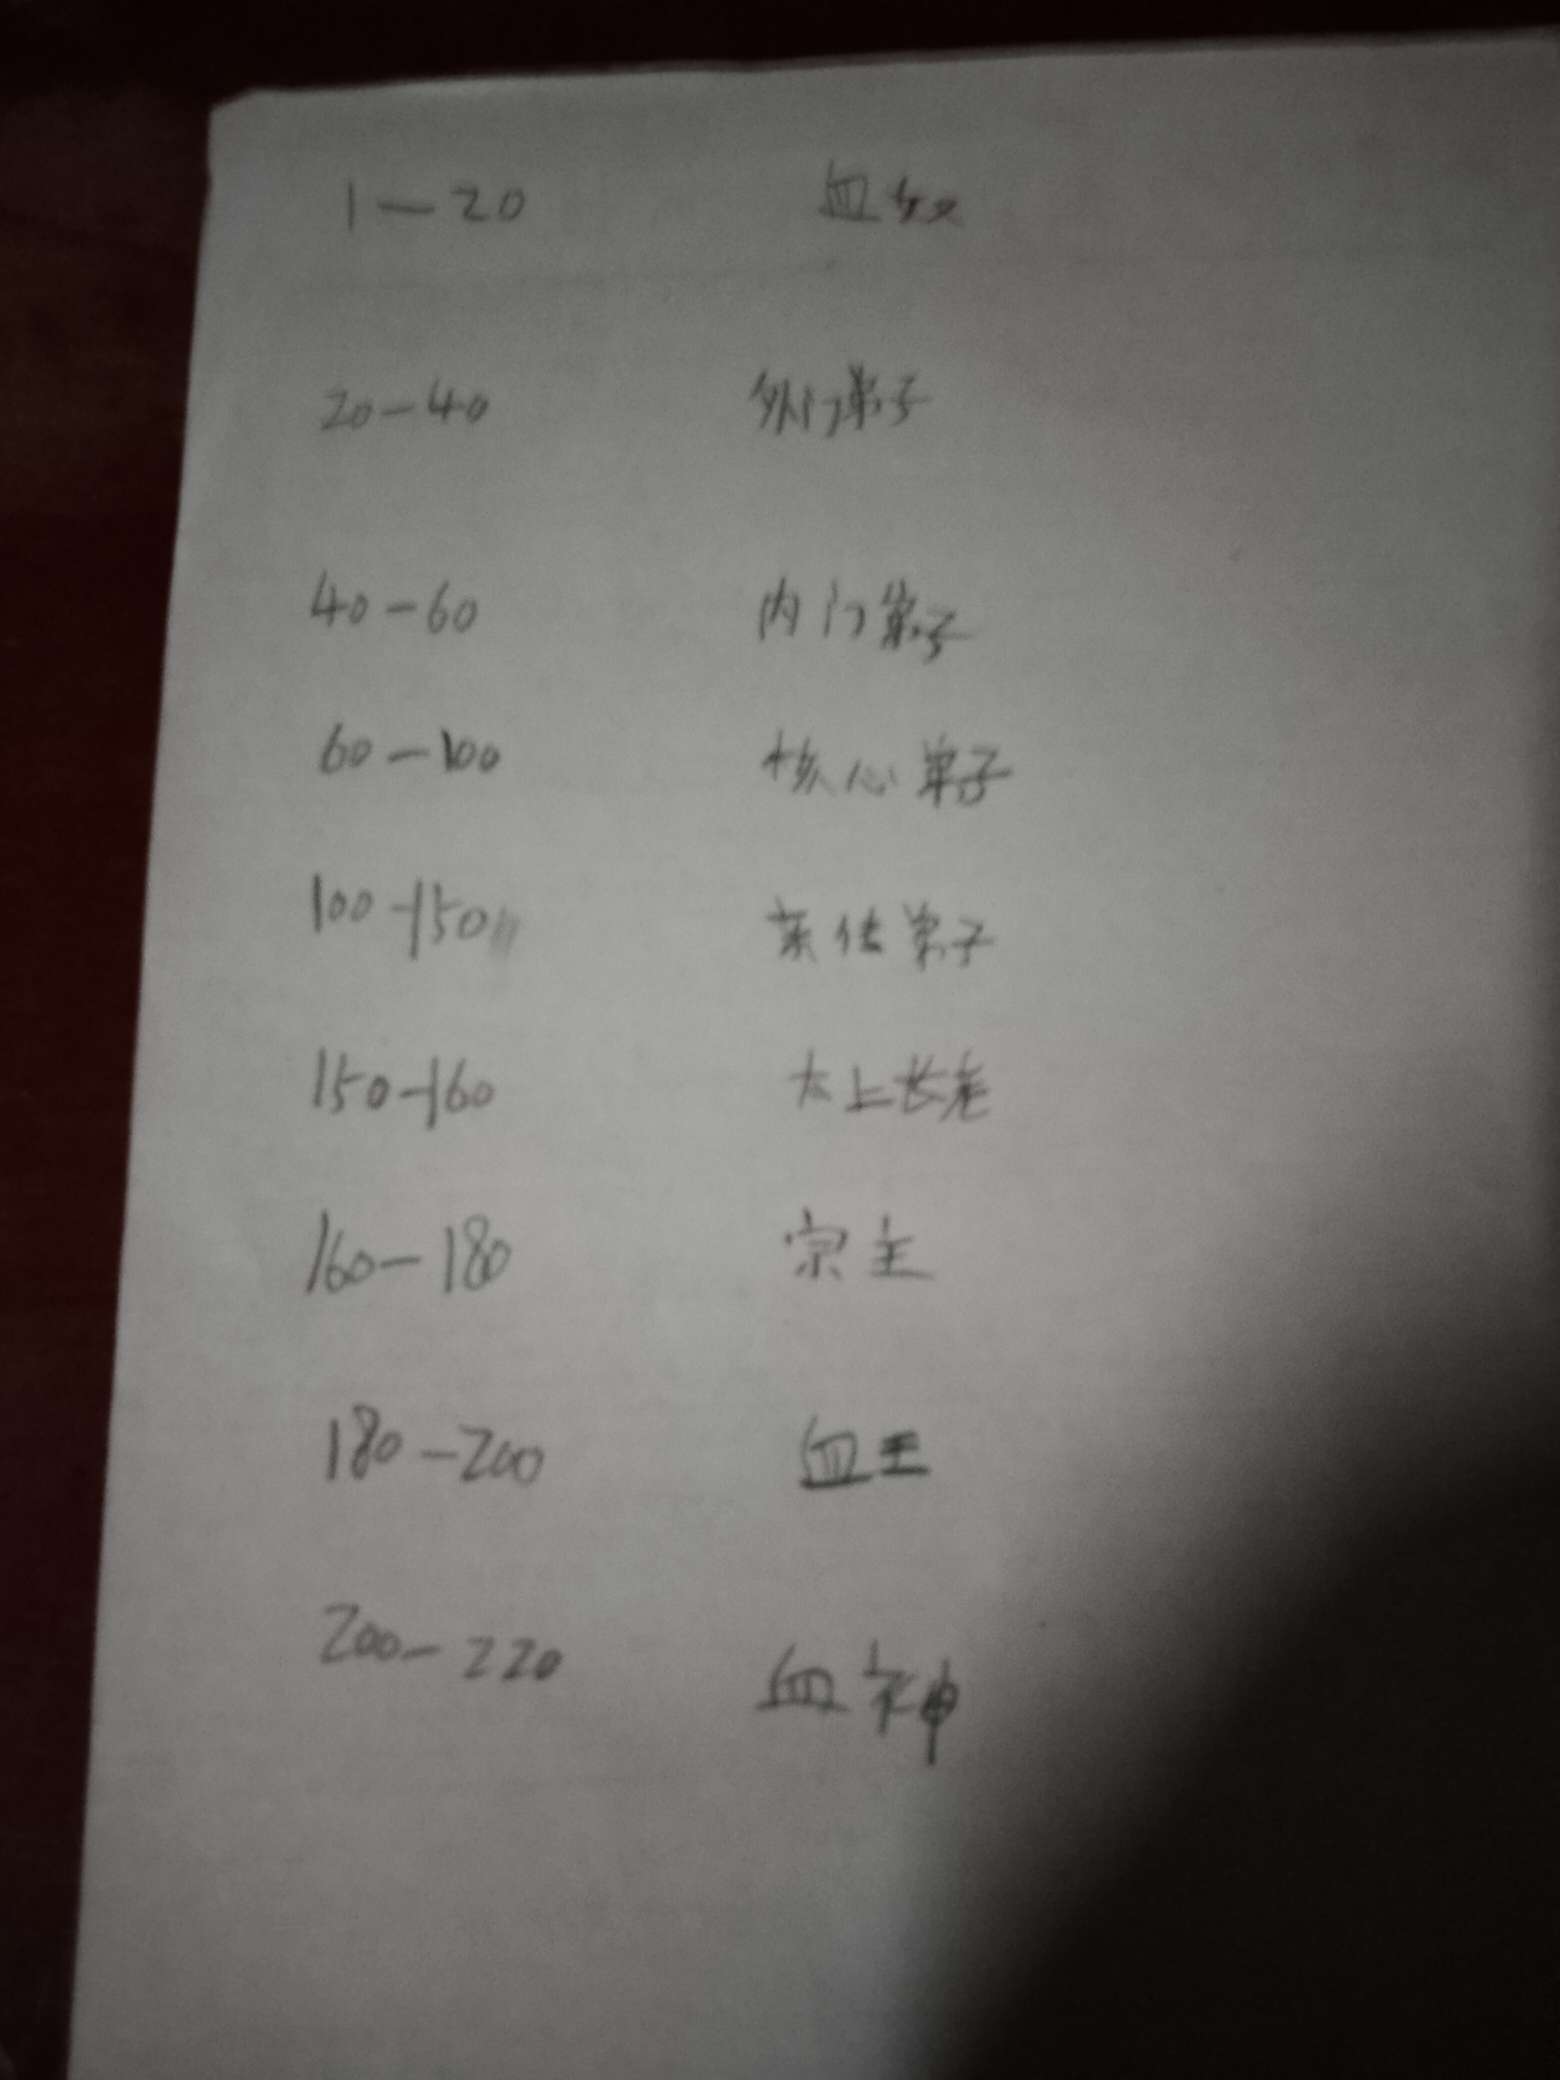 1—20 血奴
20—40 外门弟子
40—60 内门弟子
60—100 核心弟子
100—150 亲传弟子
150—160 太上长老
160—180 宗主
180—200 血王
200—220 血神